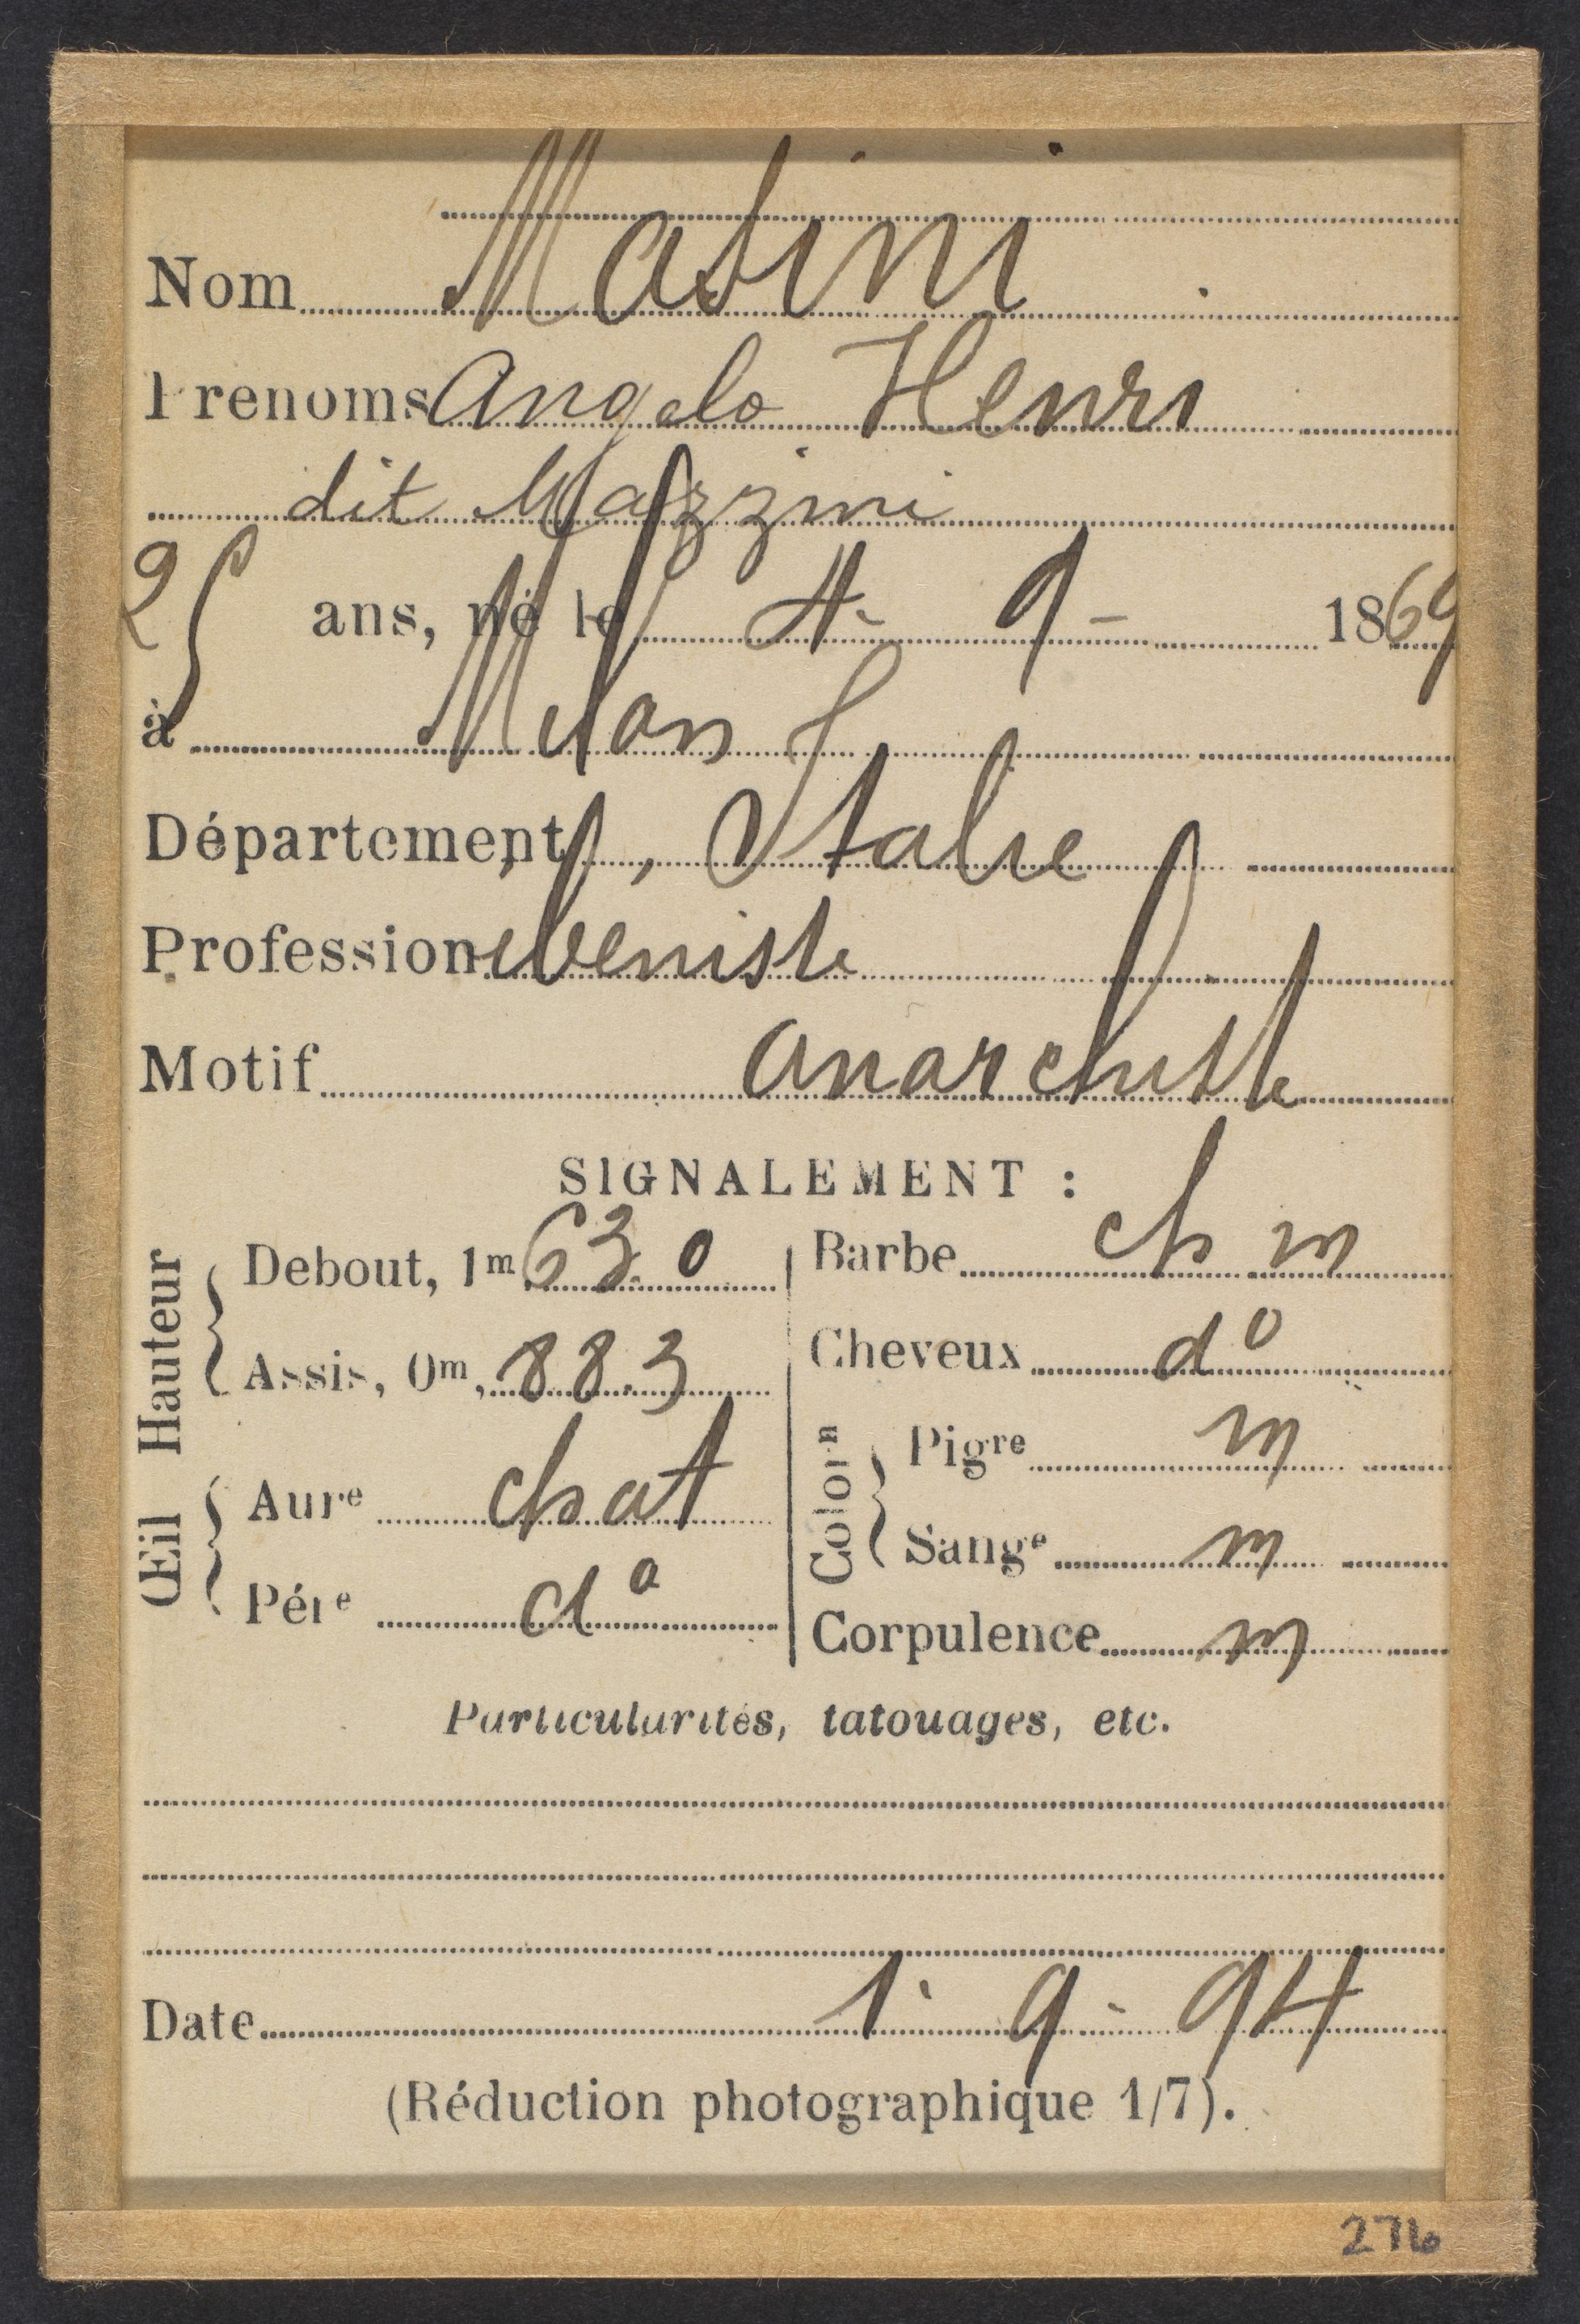 Nom Masini
Prénoms Angelo Henri
dit Mazzini
25 ans, né le 4- 9- 1869
à Milan
Département, Italie
Profession ébéniste
Motif anarchiste
SIGNALEMENT :
Hauteur
Debout, 1m 63.0
Assis, 0m, 88.3
Œil
Aure chat
Pére do
Barbe ch m
Cheveux do
Colorn
Pigre m
Sange m
Corpulence m
Particularités, tatouages, etc.
Date 1- 9- 94
(Réduction photographique 1/7).
276